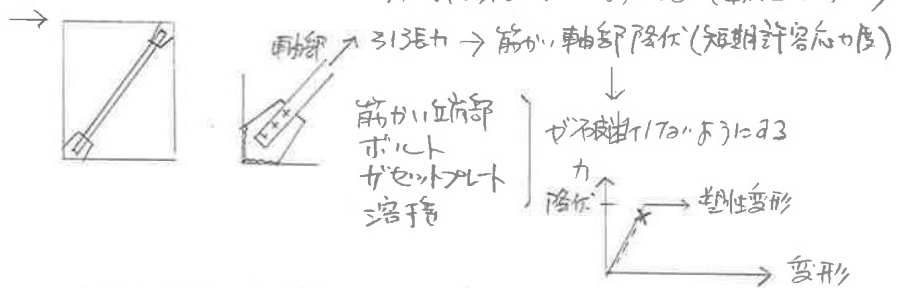 軸部 引張力 → 筋かい軸部降伏(短期許容応力度)
↓
筋かい端部
ボルト
ガセットプレート
溶接
が破断しないようにする
力
降伏
塑性変形
変形